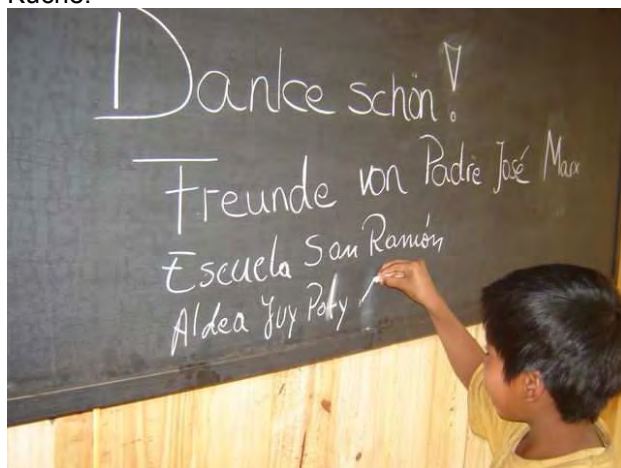 Danke schön!
Freunde von Padre José Marx
Escuela San Ramón
Aldea Yvy Poty